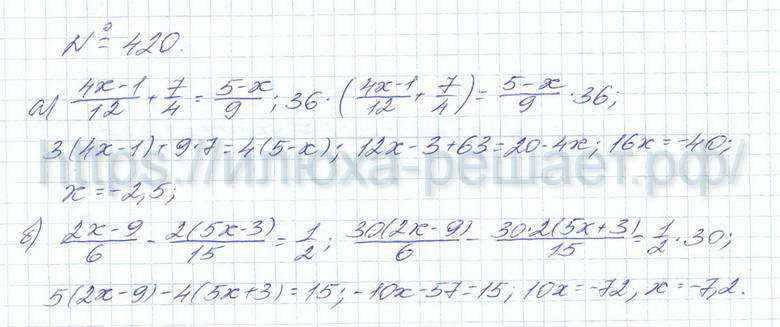 № 420.
а) (4x-1)/12 + 7/4 = (5-x)/9; 36·((4x-1)/12 + 7/4) = (5-x)/9 · 36;
3(4x-1)+9·7=4(5-x); 12x-3+63=20-4x; 16x=-40;
https://илюха-решает.рф/
x=-2,5;
б) (2x-9)/6 - 2(5x-3)/15 = 1/2; 30(2x-9)/6 - 30·2(5x+3)/15 = 1/2 · 30;
5(2x-9)-4(5x+3)=15; -10x-57=15; 10x=-72, x=-7,2.